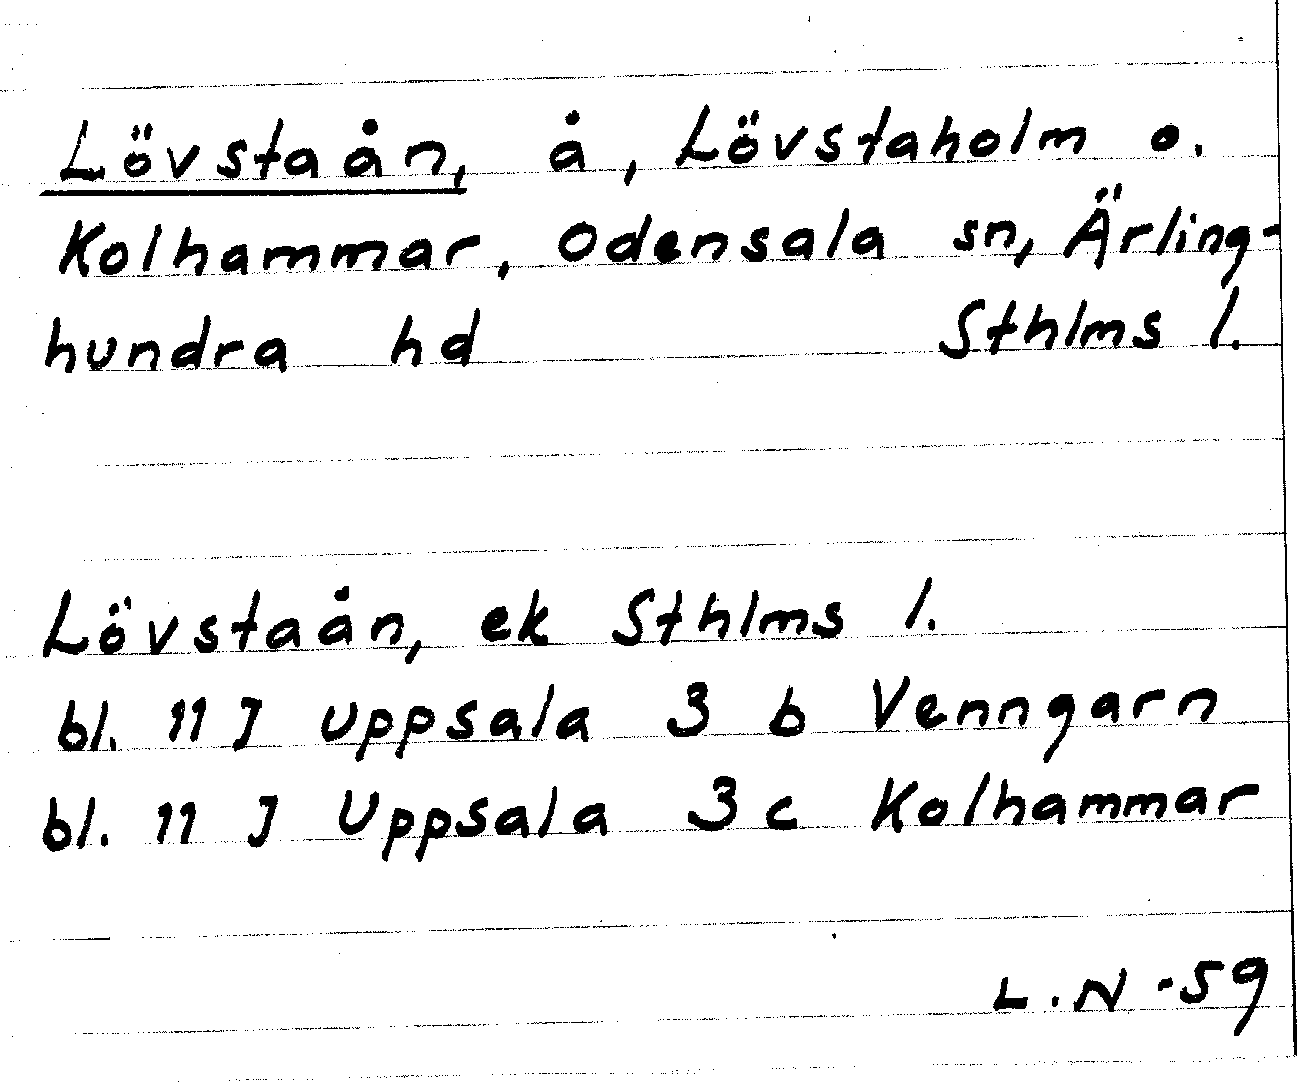 Lövstaån, å, Lövstaholm o.
Kolhammar, Odensala sn, Ärling-
hundra hd Sthlms l.
Lövstaån, ek Sthlms l.
bl. 11 J Uppsala 3 b Venngarn
bl. 11 J Uppsala 3 c Kolhammar
L.N -59